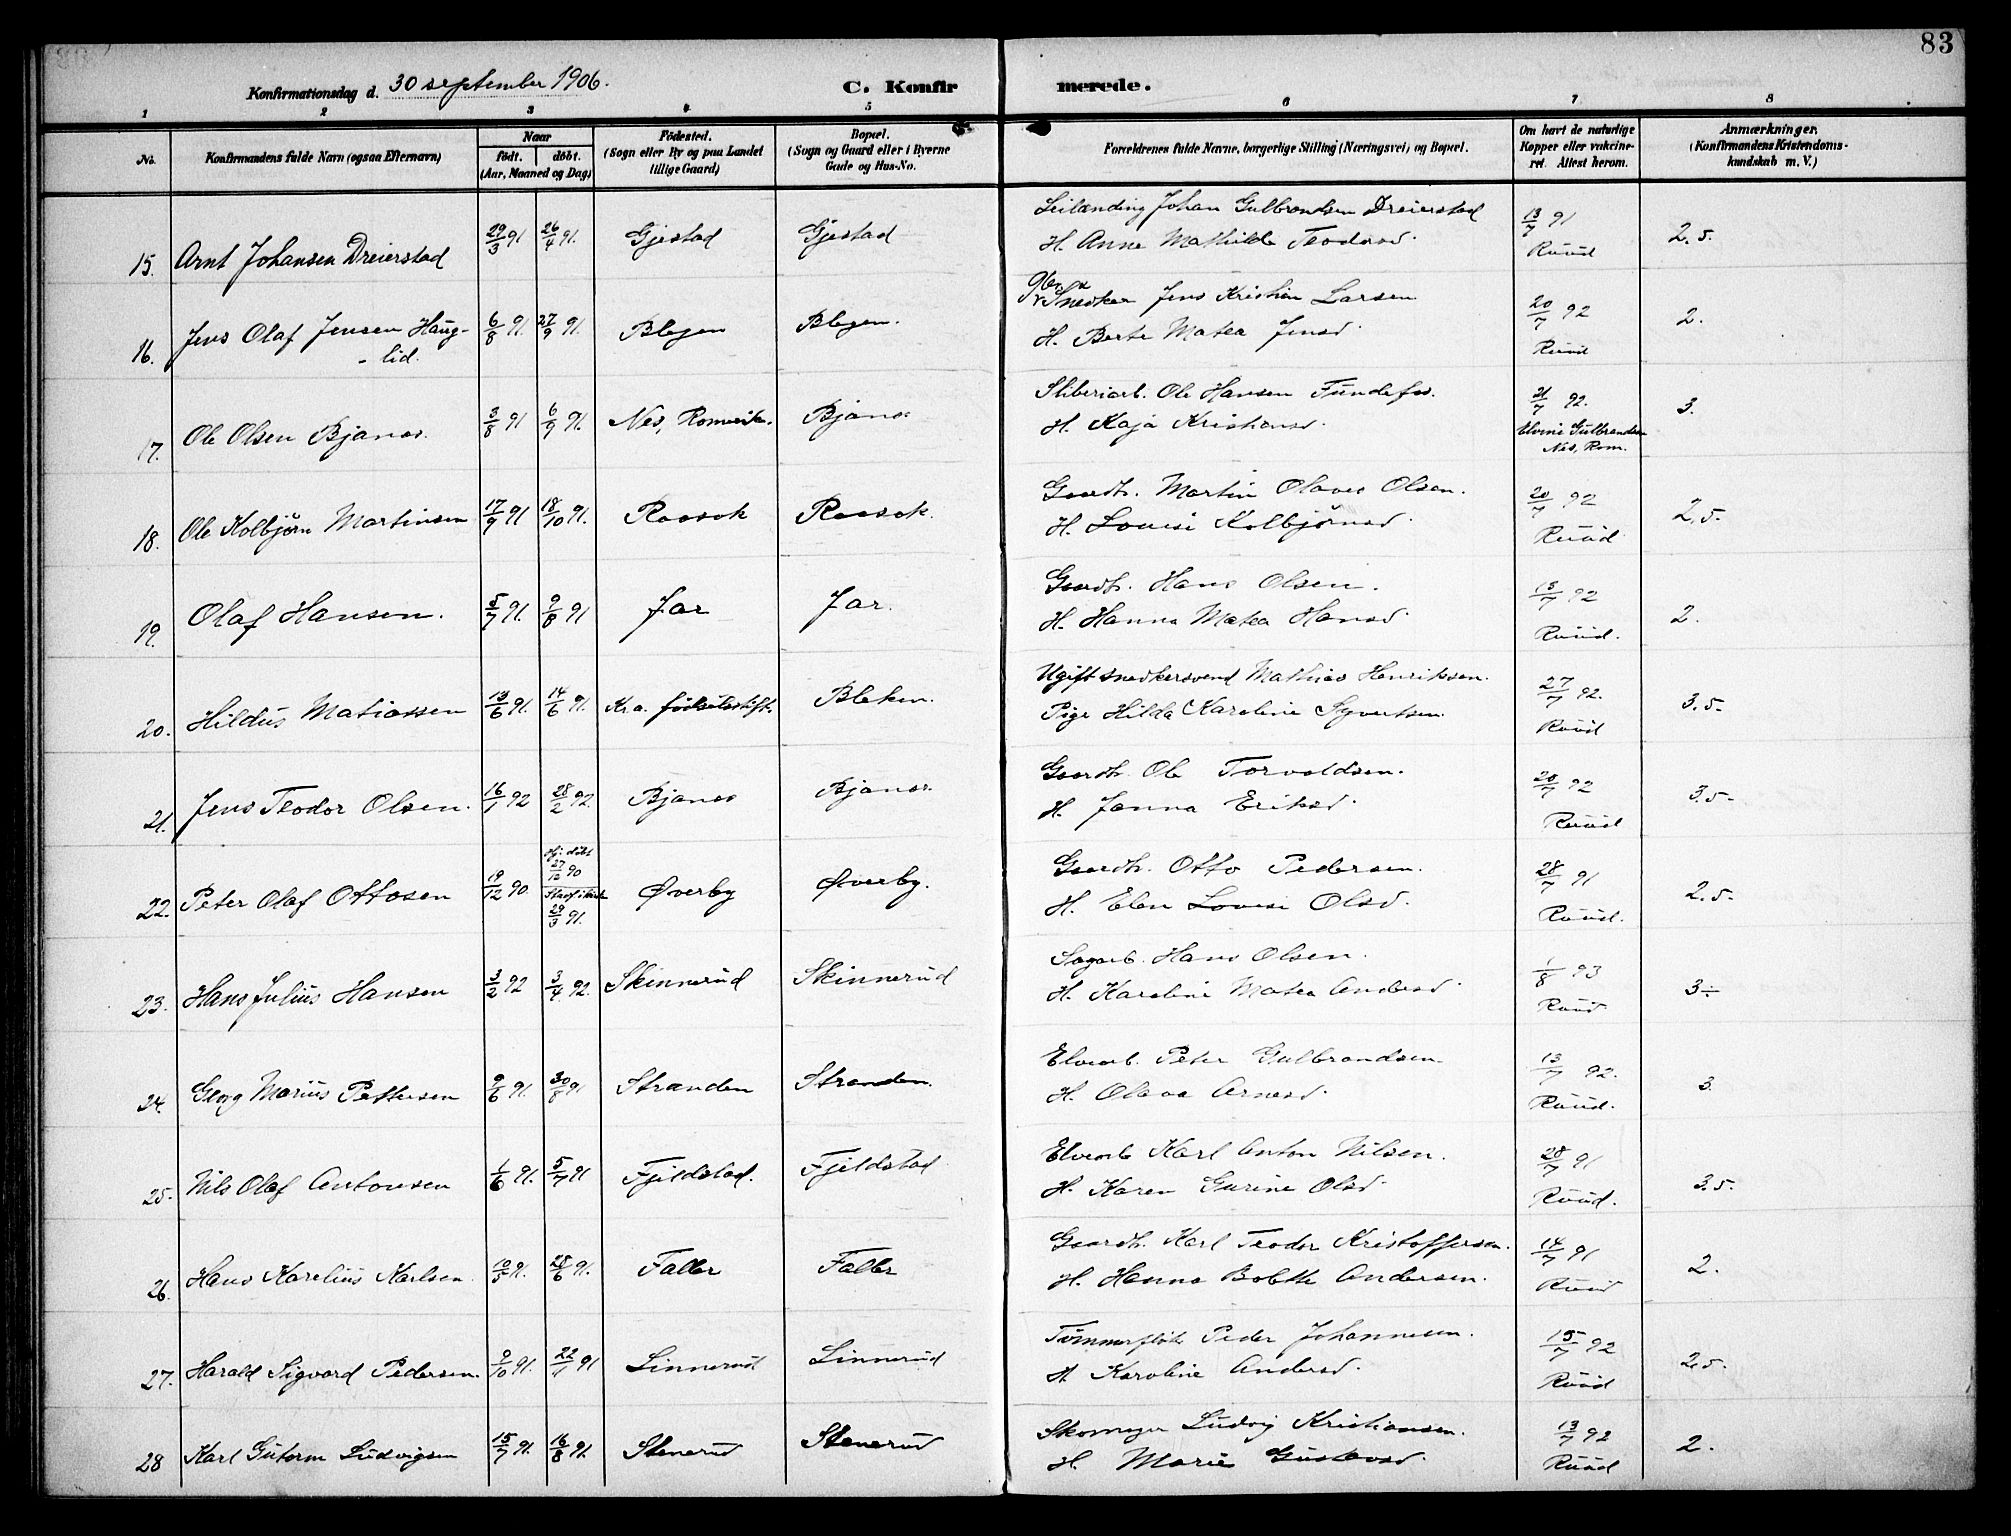 83
Konfirmationsdag d. 30 september 1906.
C. Konfirmerede.
1 2 3 4 5 6 7 8
No.
Konfirmandens fulde Navn (ogsaa Efternavn)
Naar
født. døbt.
(Aar, Maaned og Dag)
Fødested.
(Sogn eller By og paa Landet
tillige Gaard)
Bopæl.
(Sogn og Gaard eller i Byerne
Gade og Hus-No.
Forældrenes fulde Navne, borgerlige Stilling (Næringsvei) og Bopæl.
Om havt de naturlige
Kopper eller vakcine-
ret. Attest herom.
Anmærkninger.
(Konfirmandens Kristendoms-
kundskab m. V.)
15. Arnt Johansen Dreierstad 29/3 91 26/4 91. Gjestad Gjestad
Leilænding Johan Gulbrandsen Dreierstad
H. Anne Mathilde Teodorsd.
13/7 91
Ruud
2.5.
16. Jens Olaf Jensen Haug-
-lid.
6/8 91. 27/9 91. Blegen Blegen.
Snedker Jens Kristian Larsen
H. Berte Matea Jensd.
20/7 92
Ruud
2.
17. Ole Olsen Bjanes. 3/8 91 6/9 91. Nes, Romerike. Bjanes
Sliberiarb. Ole Hansen Fundefos.
H. Kaja Kristiansd.
21/7 92.
Elvine Gulbrandsen
Nes, Rom.
3.
18. Ole Kolbjørn Martinsen 17/9 91 18/10 91. Raasok Raasok.
Gaardb. Martin Olaves Olsen.
H. Louise Kolbjørnsd.
20/7 92
Ruud
2,5.
19. Olaf Hansen. 5/7 91. 9/8 91 Jar Jar.
Gaardb. Hans Olsen.
H. Hanna Matea Hansd.
13/7 92
Ruud.
2.
20. Hildus Matiassen 13/6 91. 14/6 91. Kra. fødselsstift. Bleken.
Ugift snedkersvend Mathias Henriksen.
Pige Hilda Karoline Syvertsen.
27/7 92.
Ruud
3.5.
21. Jens Teodor Olsen. 16/1 92 28/2 92. Bjanes Bjanes.
Gaardb. Ole Torvaldsen.
H. Janna Eriksd.
20/7 92
Ruud
3.5.
22. Peter Olaf Ottosen 19/12 90
Hj: døbt
27/12 90
29/3 91.
Øverby Øverby.
Gaardb. Otto Pedersen.
H. Elen Lovise Olsd.
28/7 91
Ruud.
2.5.
23. Hans Julius Hansen 3/2 92 3/4 92. Skinnerud Skinnerud
Sagarb. Hans Olsen.
H. Karoline Matea Andersd.
1/8 93
Ruud
3÷
24. Georg Marius Pettersen 9/6 91. 30/8 91 Stranden Stranden.
Elvearb. Peter Gulbrandsen
H. Olava Arnesd.
13/7 92.
Ruud.
3.
25. Nils Olaf Antonsen 1/6 91. 5/7 91 Fjeldstad. Fjeldstad
Elvearb Karl Anton Nilsen.
H. Karen Gurine Olsd.
28/7 91
Ruud.
3.5.
26. Hans Karelius Karlsen. 10/5 91. 28/6 91. Faller Faller
Gaardb. Karl Teodor Kristoffersen.
H. Hanna Bolette Andersen.
14/7 91
Ruud
2.
27. Harald Sigvard Pedersen. 9/10 91. 22/11 91 Linnerud Linnerud
Tømmerfløter Peder Johannesen.
H. Karoline Andersd.
15/7 92
Ruud
2.5.
28 Karl Gutorm Ludvigsen 15/7 91. 16/8 91. Stenerud Stenerud
Skomager Ludvig Kristiansen.
H. Marie Gustavsd.
13/7 92
Ruud
2.